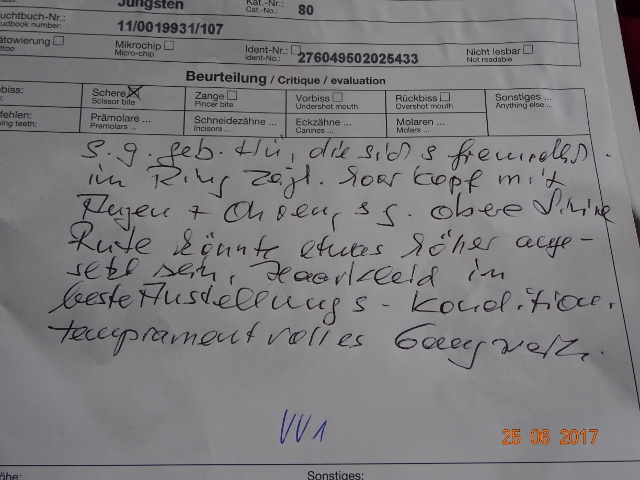 Jüngsten
Kat.-Nr.:
Cat.-No.: 80
uchtbuch-Nr.:
udbook number: 11/0019931/107
ätowierung
ttoo
Mikrochip
Micro-chip
Ident-Nr.:
Ident-No.: 276049502025433
Nicht lesbar
Not readable
Beurteilung / Critique / evaluation
ebiss: Schere Scissor bite
Zange Pincer bite
Vorbiss Undershot mouth
Rückbiss Overshot mouth
Sonstiges ... Anything else ...
fehlen:
ing teeth:
Prämolare ... Premolars ...
Schneidezähne ... Incisors ...
Eckzähne ... Canines ...
Molaren ... Molars ...
S. g. geb. Hü, die sich s freundlich
im Ring zeigt. Kopf mit
Augen + Ohren, s g. obere Linie
Rute könnte etwas höher ange-
setzt sein, Haarkleid in
bester Austellungs - Kondition.
tempramentvolles Gangwerk.
VV1
25 08 2017
öhe:
Sonstiges: